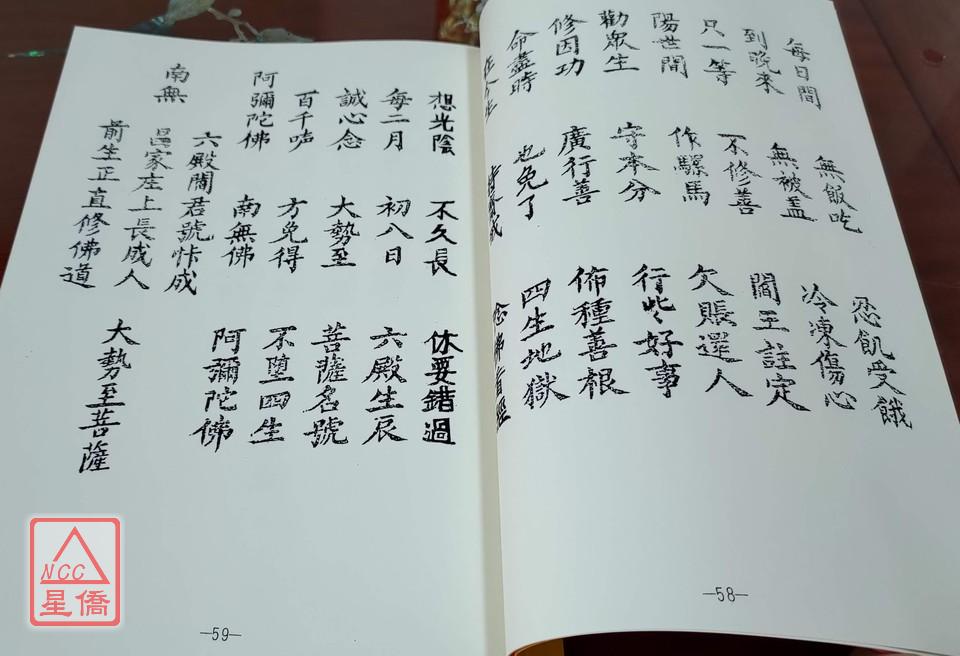 每日間 無飯吃 忍飢受餓
到晚來 無被盖 冷凍傷心
只一等 不修善 閻王註定
陽世間 作騾馬 欠賬還人
勸眾生 守本分 行些好事
修因功 廣行善 佈種善根
命盡時 也免了 四生地獄
—58—
想光陰 不久長 休要錯過
每二月 初八日 六殿生辰
誠心念 大勢至 菩薩名號
百千吽 方免得 不墮四生
阿彌陀佛 南無佛 阿彌陀佛
六殿閻君號忭成
家在上長成人
前生正直修佛道
南無 大勢至菩薩
—59—
NCC
星僑